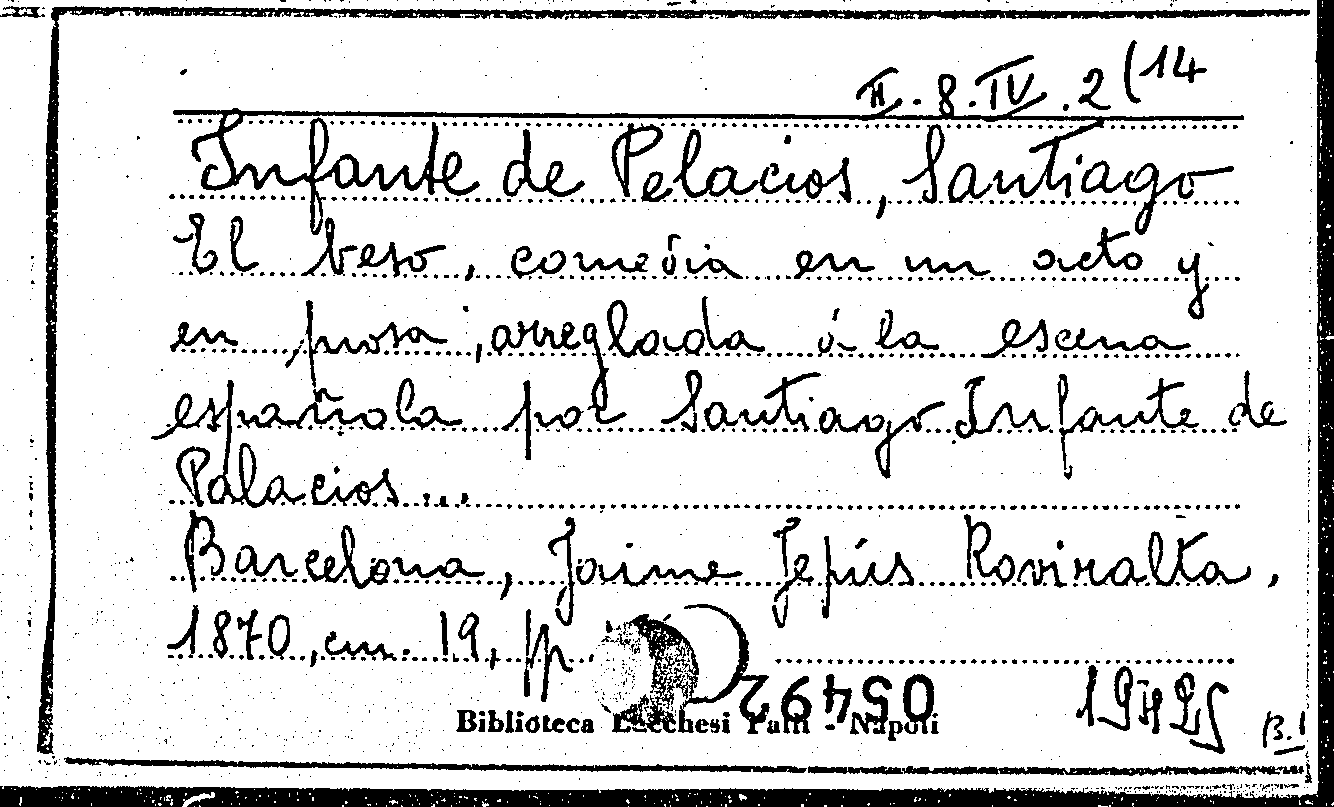 II.8.IV.2(14
Infante de Pelacios, Santiago
El beso, comedia en un acto y
en prosa, arreglada á la escena
española por Santiago Infante de
Palacios...
Barcelona, Jaime Jepús Roviralta,
1870, cm. 19, pp.
05492
Biblioteca Lucchesi Palli - Napoli
B.1